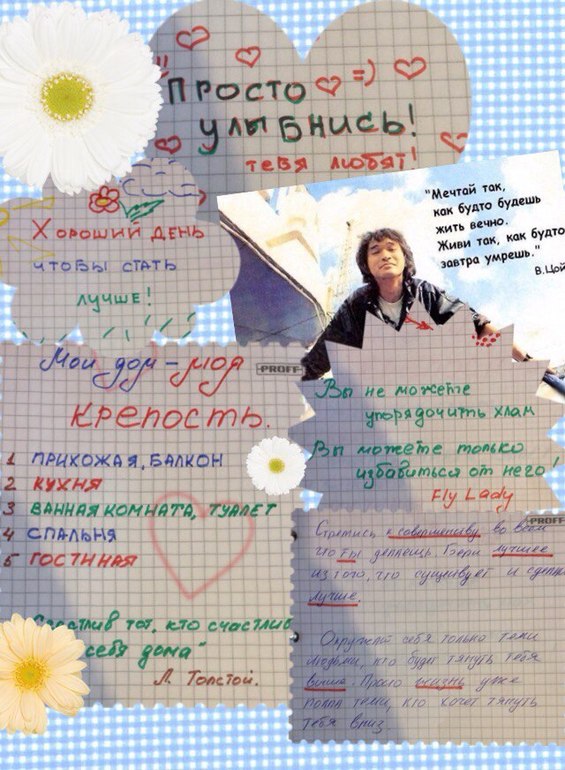 Просто =)
улыбнись!
тебя любят!
Хороший день
чтобы стать
лучше!
"Мечтай так,
как будто будешь
жить вечно.
Живи так, как будто
завтра умрешь."
В.Цой
Мой дом – моя
крепость.
PROFF
1 ПРИХОЖАЯ, БАЛКОН
2 КУХНЯ
3 ВАННАЯ КОМНАТА, ТУАЛЕТ
4 СПАЛЬНЯ
5 ГОСТИННАЯ
счастлив
тот, кто счастлив
себя дома"
Л. Толстой.
Вы не можете
упорядочить хлам
Вы можете только
избавиться от него!
Fly Lady
PROFF
Стремись к совершенству во всем
что ты делаешь. Бери лучшее
из того, что существует и сделай
лучше.
Окружай себя только теми
людьми, кто будет тянуть тебя
выше. Просто жизнь уже
полна теми, кто хочет тянуть
тебя вниз.